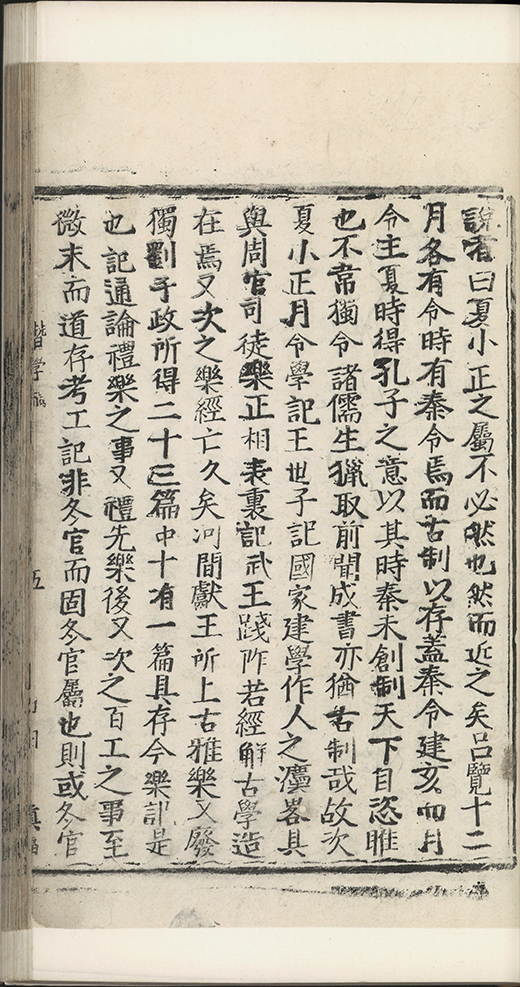 說者曰夏小正之屬不必然也然而近之矣呂覽十二
月各有令時有秦令焉而古制以存蓋秦令建亥而月
令主夏時得孔子之意以其時秦未創制天下自恣睢
也不韋獨令諸儒生獵取前聞成書亦猶古制哉故次
夏小正月令學記王世子記國家建學作人之灋畧具
與周官司徒樂正相表裏記武王踐阼若經解古學造
在焉又次之樂經亡久矣河間獻王所上古雅樂又廢
獨劉子政所得二十三篇中十有一篇具存今樂記是
也記通論禮樂之事又禮先樂後又次之百工之事至
微末而道存考工記非冬官而固冬官屬也則或冬官
五